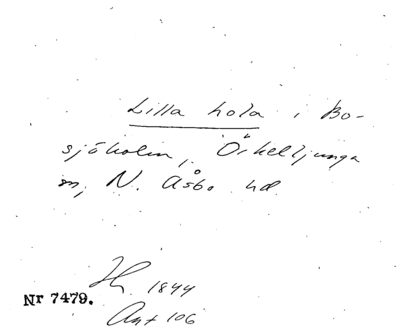 Lilla hola i Bo-
sjöholm, Örkelljunga
sn, N. Åsbo hd.
1844
Nr 7479.
Ant 106